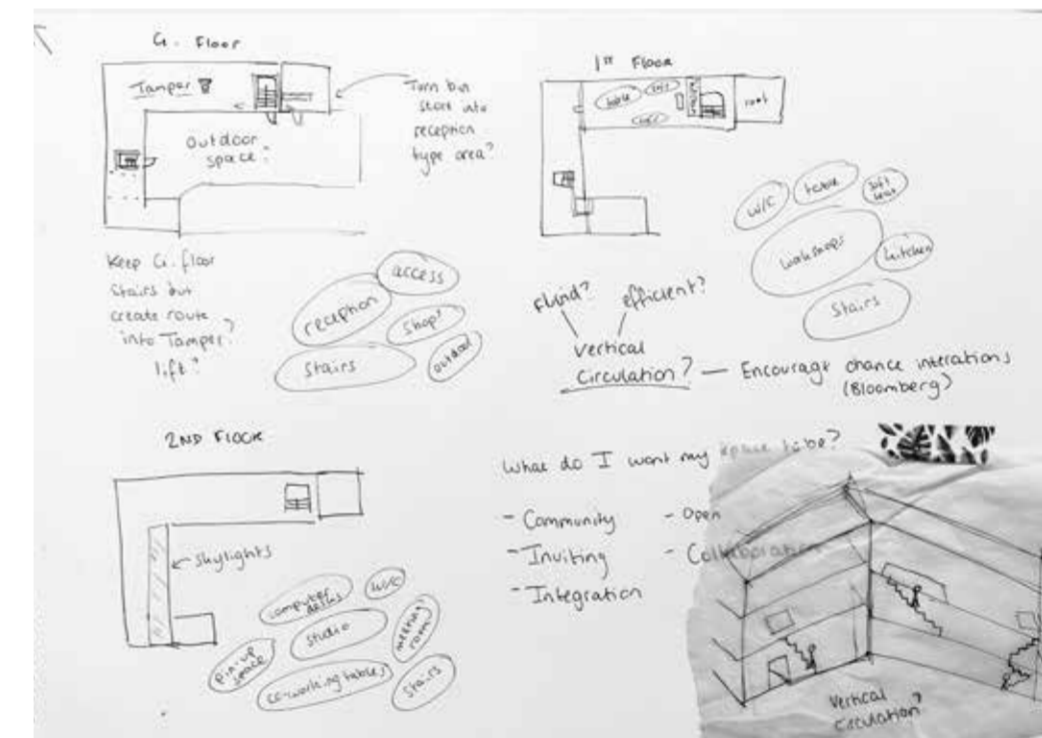 G. Floor
Tamper
outdoor
space?
Turn bin
store into
reception
type area?
Keep G. floor
stairs but
create route
into Tamper?
lift?
access
reception
shop?
outdoor
stairs
1ST FLOOR
table
roof
W/C
table
soft
seat
workshops
kitchen
Stairs
fluid? efficient?
Vertical
Circulation? — Encourage chance interations
(Bloomberg)
2ND FLOOR
skylights
computer
desks
W/C
studio
meeting
room
pin-up
space
co-working tables
stairs
What do I want my space to be?
- Community
- Inviting
- Integration
- Open
- Collaboration
Vertical
Circulation?